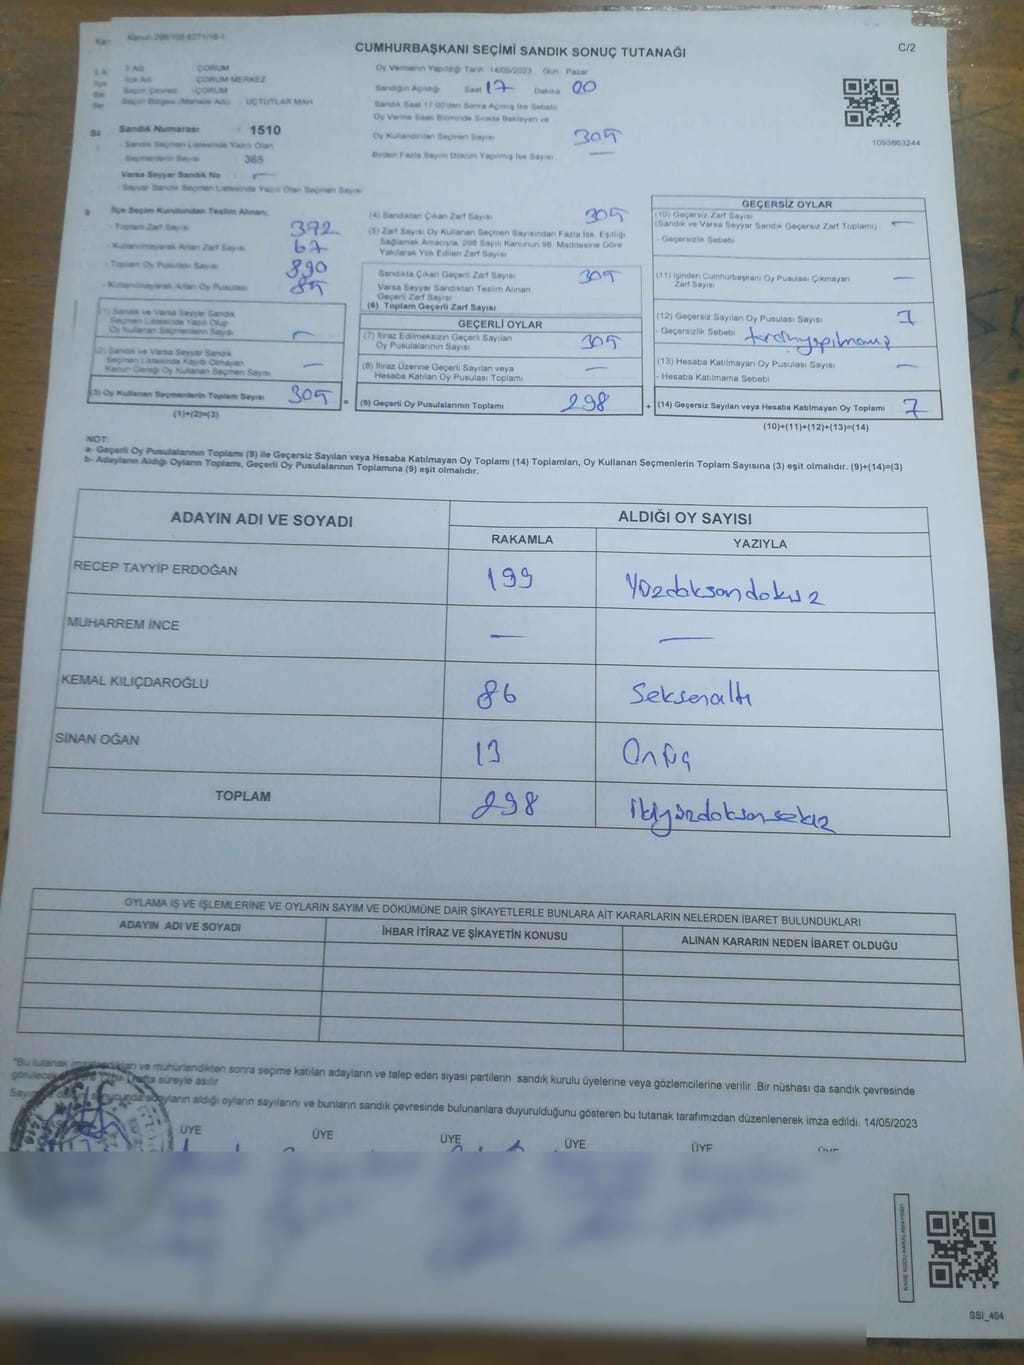 Kanun 298/105-6271/18-1
CUMHURBAŞKANI SEÇİMİ SANDIK SONUÇ TUTANAĞI
C/2
İl Adı : ÇORUM
İlçe Adı : ÇORUM MERKEZ
Seçim Çevresi : ÇORUM
Seçim Bölgesi (Mahalle Adı) : UÇTUTLAR MAH
Sandık Numarası : 1510
- Sandık Seçmen Listesinde Yazılı Olan
Seçmenlerin Sayısı : 365
Varsa Seyyar Sandık No : —
- Seyyar Sandık Seçmen Listesinde Yazılı Olan Seçmen Sayısı
Oy Vermenin Yapıldığı Tarih 14/05/2023 Gün Pazar
Sandığın Açıldığı Saat 17 Dakika 00
Sandık Saat 17.00'den Sonra Açılmış İse Sebebi
Oy Verme Saati Bitiminde Sırada Bekleyen ve
Oy Kullandırılan Seçmen Sayısı 305
Birden Fazla Sayım Döküm Yapılmış İse Sayısı —
1093863244
İlçe Seçim Kurulundan Teslim Alınan;
- Toplam Zarf Sayısı 372
- Kullanılmayarak Artan Zarf Sayısı 67
- Toplam Oy Pusulası Sayısı 390
- Kullanılmayarak Artan Oy Pusulası 85
(1) Sandık ve Varsa Seyyar Sandık
Seçmen Listesinde Yazılı Olup
Oy Kullanan Seçmenlerin Sayısı —
(2) Sandık ve Varsa Seyyar Sandık
Seçmen Listesinde Kayıtlı Olmayan
Kanun Gereği Oy Kullanan Seçmen Sayısı —
(3) Oy Kullanan Seçmenlerin Toplam Sayısı 305 =
(1)+(2)=(3)
(4) Sandıktan Çıkan Zarf Sayısı 305
(5) Zarf Sayısı Oy Kullanan Seçmen Sayısından Fazla İse, Eşitliği
Sağlamak Amacıyla, 298 Sayılı Kanunun 98. Maddesine Göre
Yakılarak Yok Edilen Zarf Sayısı
Sandıkta Çıkan Geçerli Zarf Sayısı 305
Varsa Seyyar Sandıktan Teslim Alınan
Geçerli Zarf Sayısı
(6) Toplam Geçerli Zarf Sayısı
GEÇERLİ OYLAR
(7) İtiraz Edilmeksizin Geçerli Sayılan
Oy Pusulalarının Sayısı 305
(8) İtiraz Üzerine Geçerli Sayılan veya
Hesaba Katılan Oy Pusulası Toplamı —
(9) Geçerli Oy Pusulalarının Toplamı 298 +
GEÇERSİZ OYLAR
(10) Geçersiz Zarf Sayısı
(Sandık ve Varsa Seyyar Sandık Geçersiz Zarf Toplamı) —
- Geçersizlik Sebebi
(11) İçinden Cumhurbaşkanı Oy Pusulası Çıkmayan
Zarf Sayısı —
(12) Geçersiz Sayılan Oy Pusulası Sayısı 7
- Geçersizlik Sebebi
(13) Hesaba Katılmayan Oy Pusulası Sayısı —
- Hesaba Katılmama Sebebi
(14) Geçersiz Sayılan veya Hesaba Katılmayan Oy Toplamı 7
(10)+(11)+(12)+(13)=(14)
NOT:
a- Geçerli Oy Pusulalarının Toplamı (9) ile Geçersiz Sayılan veya Hesaba Katılmayan Oy Toplamı (14) Toplamları, Oy Kullanan Seçmenlerin Toplam Sayısına (3) eşit olmalıdır. (9)+(14)=(3)
b- Adayların Aldığı Oyların Toplamı, Geçerli Oy Pusulalarının Toplamına (9) eşit olmalıdır.
ADAYIN ADI VE SOYADI ALDIĞI OY SAYISI
RAKAMLA YAZIYLA
RECEP TAYYİP ERDOĞAN 199 Yüzdoksandokuz
MUHARREM İNCE — —
KEMAL KILIÇDAROĞLU 86 Seksenaltı
SİNAN OĞAN 13 Onüç
TOPLAM 298 ikiyüzdoksansekiz
OYLAMA İŞ VE İŞLEMLERİNE VE OYLARIN SAYIM VE DÖKÜMÜNE DAİR ŞİKAYETLERLE BUNLARA AİT KARARLARIN NELERDEN İBARET BULUNDUKLARI
ADAYIN ADI VE SOYADI İHBAR İTİRAZ VE ŞİKAYETİN KONUSU ALINAN KARARIN NEDEN İBARET OLDUĞU
"Bu tutanak imzalandıktan ve mühürlendikten sonra seçime katılan adayların ve talep eden siyasi partilerin sandık kurulu üyelerine veya gözlemcilerine verilir. Bir nüshası da sandık çevresinde
görülecek süreyle asılır
adayların aldığı oyların sayılarını ve bunların sandık çevresinde bulunanlara duyurulduğunu gösteren bu tutanak tarafımızdan düzenlenerek imza edildi. 14/05/2023
ÜYE ÜYE ÜYE ÜYE ÜYE
SSİ_404